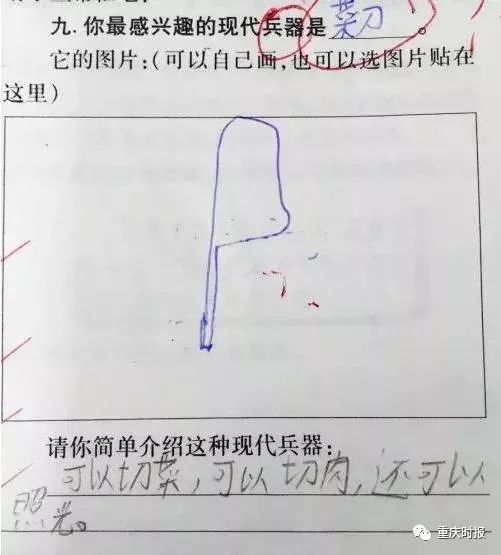 九. 你最感兴趣的现代兵器是 菜刀 。
它的图片:(可以自己画,也可以选图片贴在
这里)
请你简单介绍这种现代兵器:
可以切菜,可以切肉,还可以
照光。
重庆时报